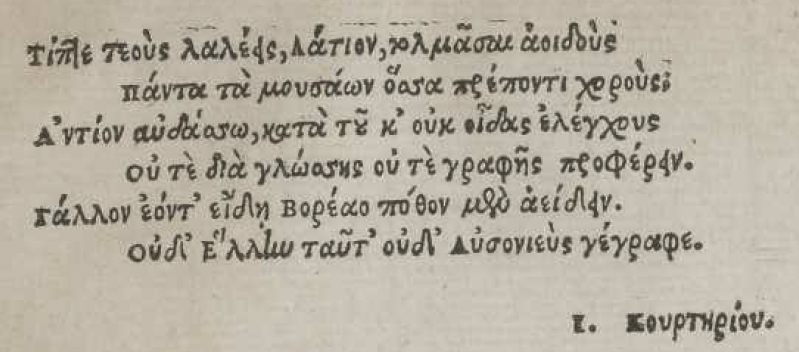 Τίπτε τεοὺς λαλέεις, Λάτιον, τολμᾶσαι ἀοιδοὺς
πάντα τὰ μουσάων ὅσσα πρέποντι χοροὺς;
Ἀντίον αὐδάσσω, κατὰ τοῦ κ' οὐκ οἶδας ἐλέγχους
οὐ τὲ διὰ γλώσσης οὐ τὲ γραφῆς προφέρειν.
Γάλλον ἐόντ' εἴδη Βορέαο πόθον μὲν ἀείδειν.
Οὐδ' Ἕλλην ταῦτ' οὐδ' Αὐσονιεὺς γέγραφε.
Ι. Κουρτηρίου.